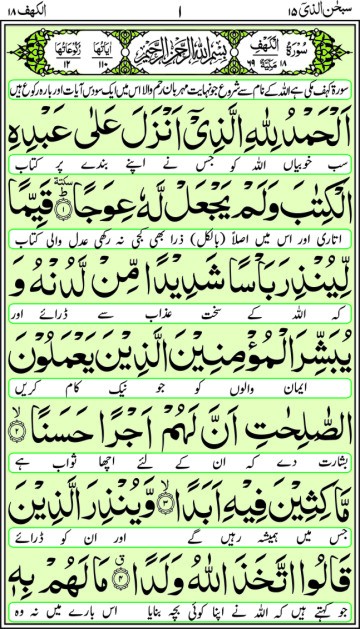 سبحٰن الذیٓ ۱۵ ۱ الکھف ۱۸
سُوْرَۃُ الْکَھْفِ ۱۸ مَکِّیَّۃٌ ۶۹ بِسْمِ اللّٰہِ الرَّحْمٰنِ الرَّحِیْمِ اٰیَاتُهَا ۱۱۰ رُكُوْعَاتُهَا ۱۲
سورۃ کہف مکی ہے اللہ کے نام سے شروع جو نہایت مہربان رحم والا اس میں ایک سو دس آیات اور بارہ رکوع ہیں
اَلْحَمْدُ لِلّٰهِ الَّذِیْۤ اَنْزَلَ عَلٰى عَبْدِهِ
سب خوبیاں اللہ کو جس نے اپنے بندے پر کتاب
الْكِتٰبَ وَلَمْ یَجْعَلْ لَّهٗ عِوَجًا ؕ سکتة ۱ قَیِّمًا
اتاری اور اس میں اصلاً (بالکل) ذرا بھی کجی نہ رکھی عدل والی کتاب
لِّیُنْذِرَ بَاْسًا شَدِیْدًا مِّنْ لَّدُنْهُ وَ
کہ اللہ کے سخت عذاب سے ڈرائے اور
یُبَشِّرَ الْمُؤْمِنِیْنَ الَّذِیْنَ یَعْمَلُوْنَ
ایمان والوں کو جو نیک کام کریں
الصّٰلِحٰتِ اَنَّ لَهُمْ اَجْرًا حَسَنًا ۙ۲
بشارت دے کہ ان کے لئے اچھا ثواب ہے
مَّاكِثِیْنَ فِیْهِ اَبَدًا ۙ۳ وَّیُنْذِرَ الَّذِیْنَ
جس میں ہمیشہ رہیں گے اور ان کو ڈرائے
قَالُوا اتَّخَذَ اللّٰهُ وَلَدًا ۗ۴ مَا لَهُمْ بِهٖ
جو کہتے ہیں کہ اللہ نے اپنا کوئی بچہ بنایا اس بارے میں نہ وہ